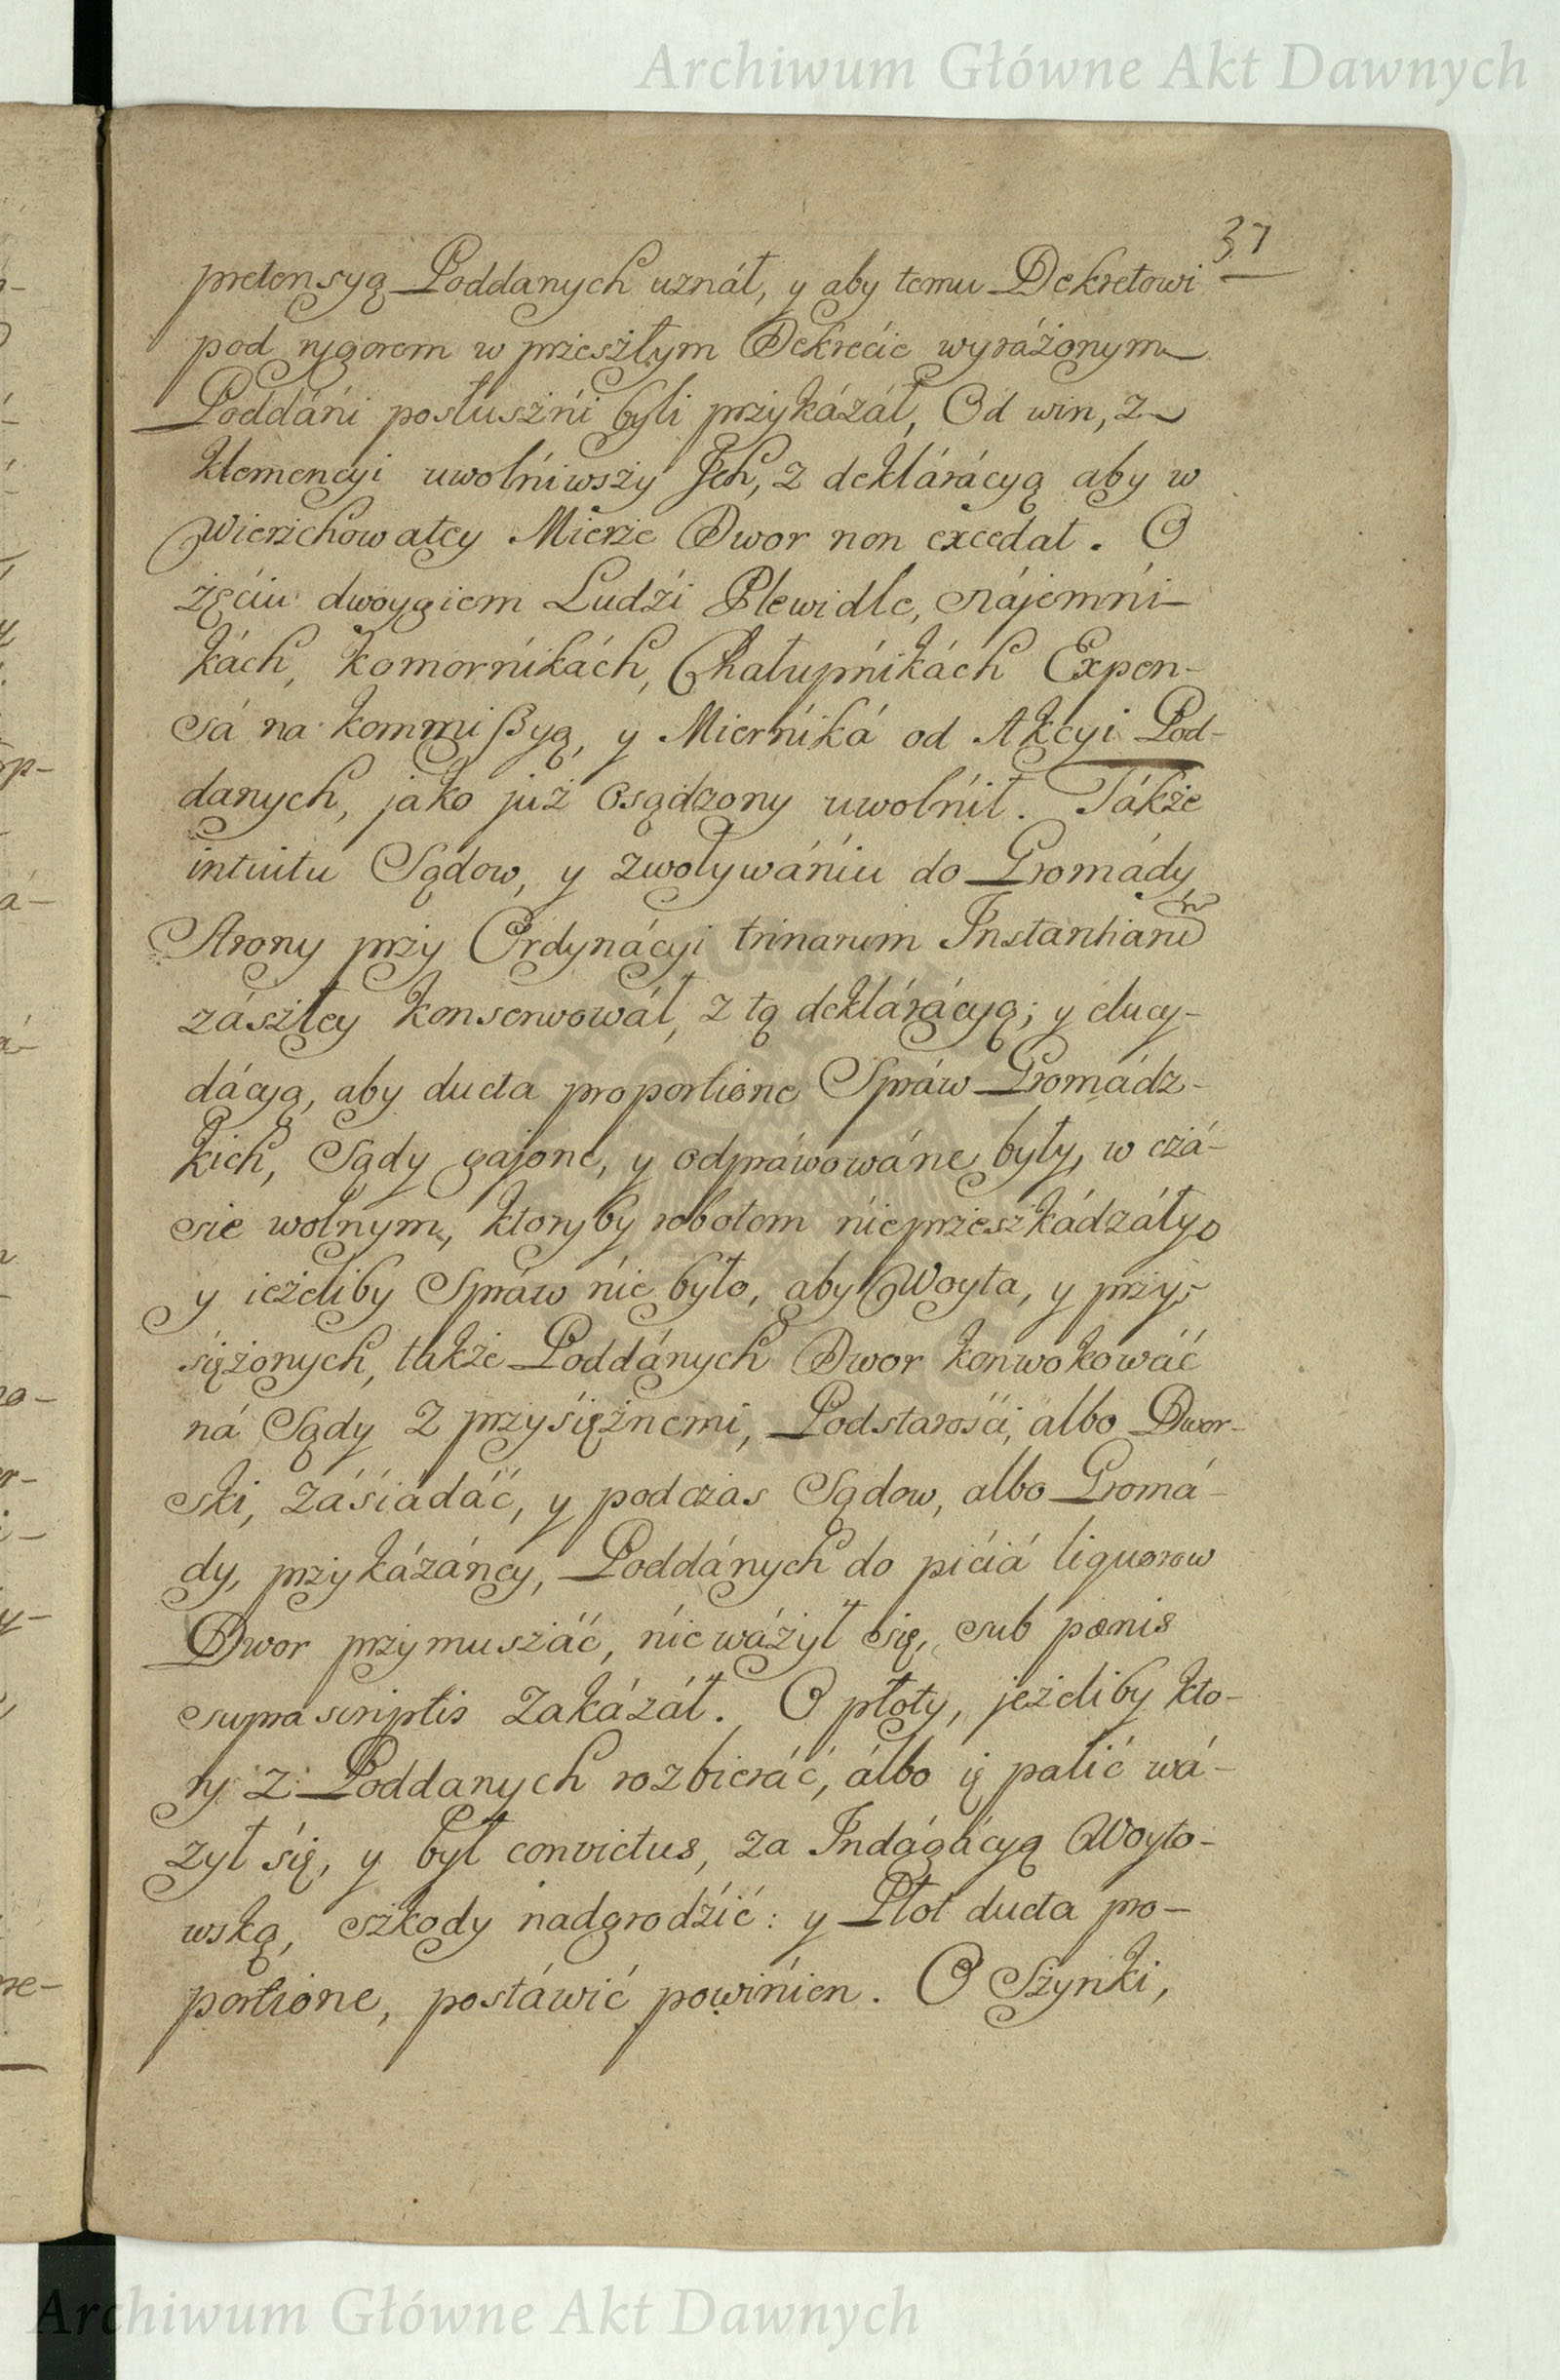 Archiwum Główne Akt Dawnych
37
pretensyą Poddanych uznáł, y aby temu Dekretowi
pod rygorem w przeszłym Dekrećie wyráżonym
Poddáńi posłuszńi byli przykázáł, Od win, z
klemencyi uwolńiwszy Jch, z deklárácyą aby w
Wierzchowatey Mierze Dwor non excedat. O
żęćiu dwoygiem Ludźi Plewidle, Nájemńi-
kách, komorńikách, Chałupńikách Expen-
sá na kommißyą, y Miernika od Akcyi Pod-
danych, jako już osądzony uwolńił. Tákże
intuitu Sądow, y zwoływáńiu do Gromády
Strony przy Ordynácyi trinarum Instantiarum
zászłey konserwowáł, z tą deklárácyą; y elucy-
dácyą, aby ducta proportione Spráw Gromádz-
kich, Sądy gajone, y odpráwowáne były, w czá-
sie wolnym, ktoryby robotom nieprzeszkádzáły,
y ieżeliby Spráw ńie było, aby Woyta, y przy-
siężonych, także Poddánych Dwor konwokowáć
ná Sądy z przyśiężnemi, Podstarośći, albo Dwor-
ski, záśiádáć, y podczas Sądow, albo Gromá-
dy, przykázáney, Poddánych do pićiá liquorow
Dwor przymuszáć, ńie wáżył się, sub pœnis
suprascriptis zakázáł. O płoty, jeżeliby kto-
ry z Poddanych rozbieráć, álbo ię palić wá-
żył śię, y był convictus, za Indágácyą Woyto-
wską, szkody nadgrodźić: y Płot ducta pro-
portione, postáwić powińien. O Szynki,
Archiwum Główne Akt Dawnych